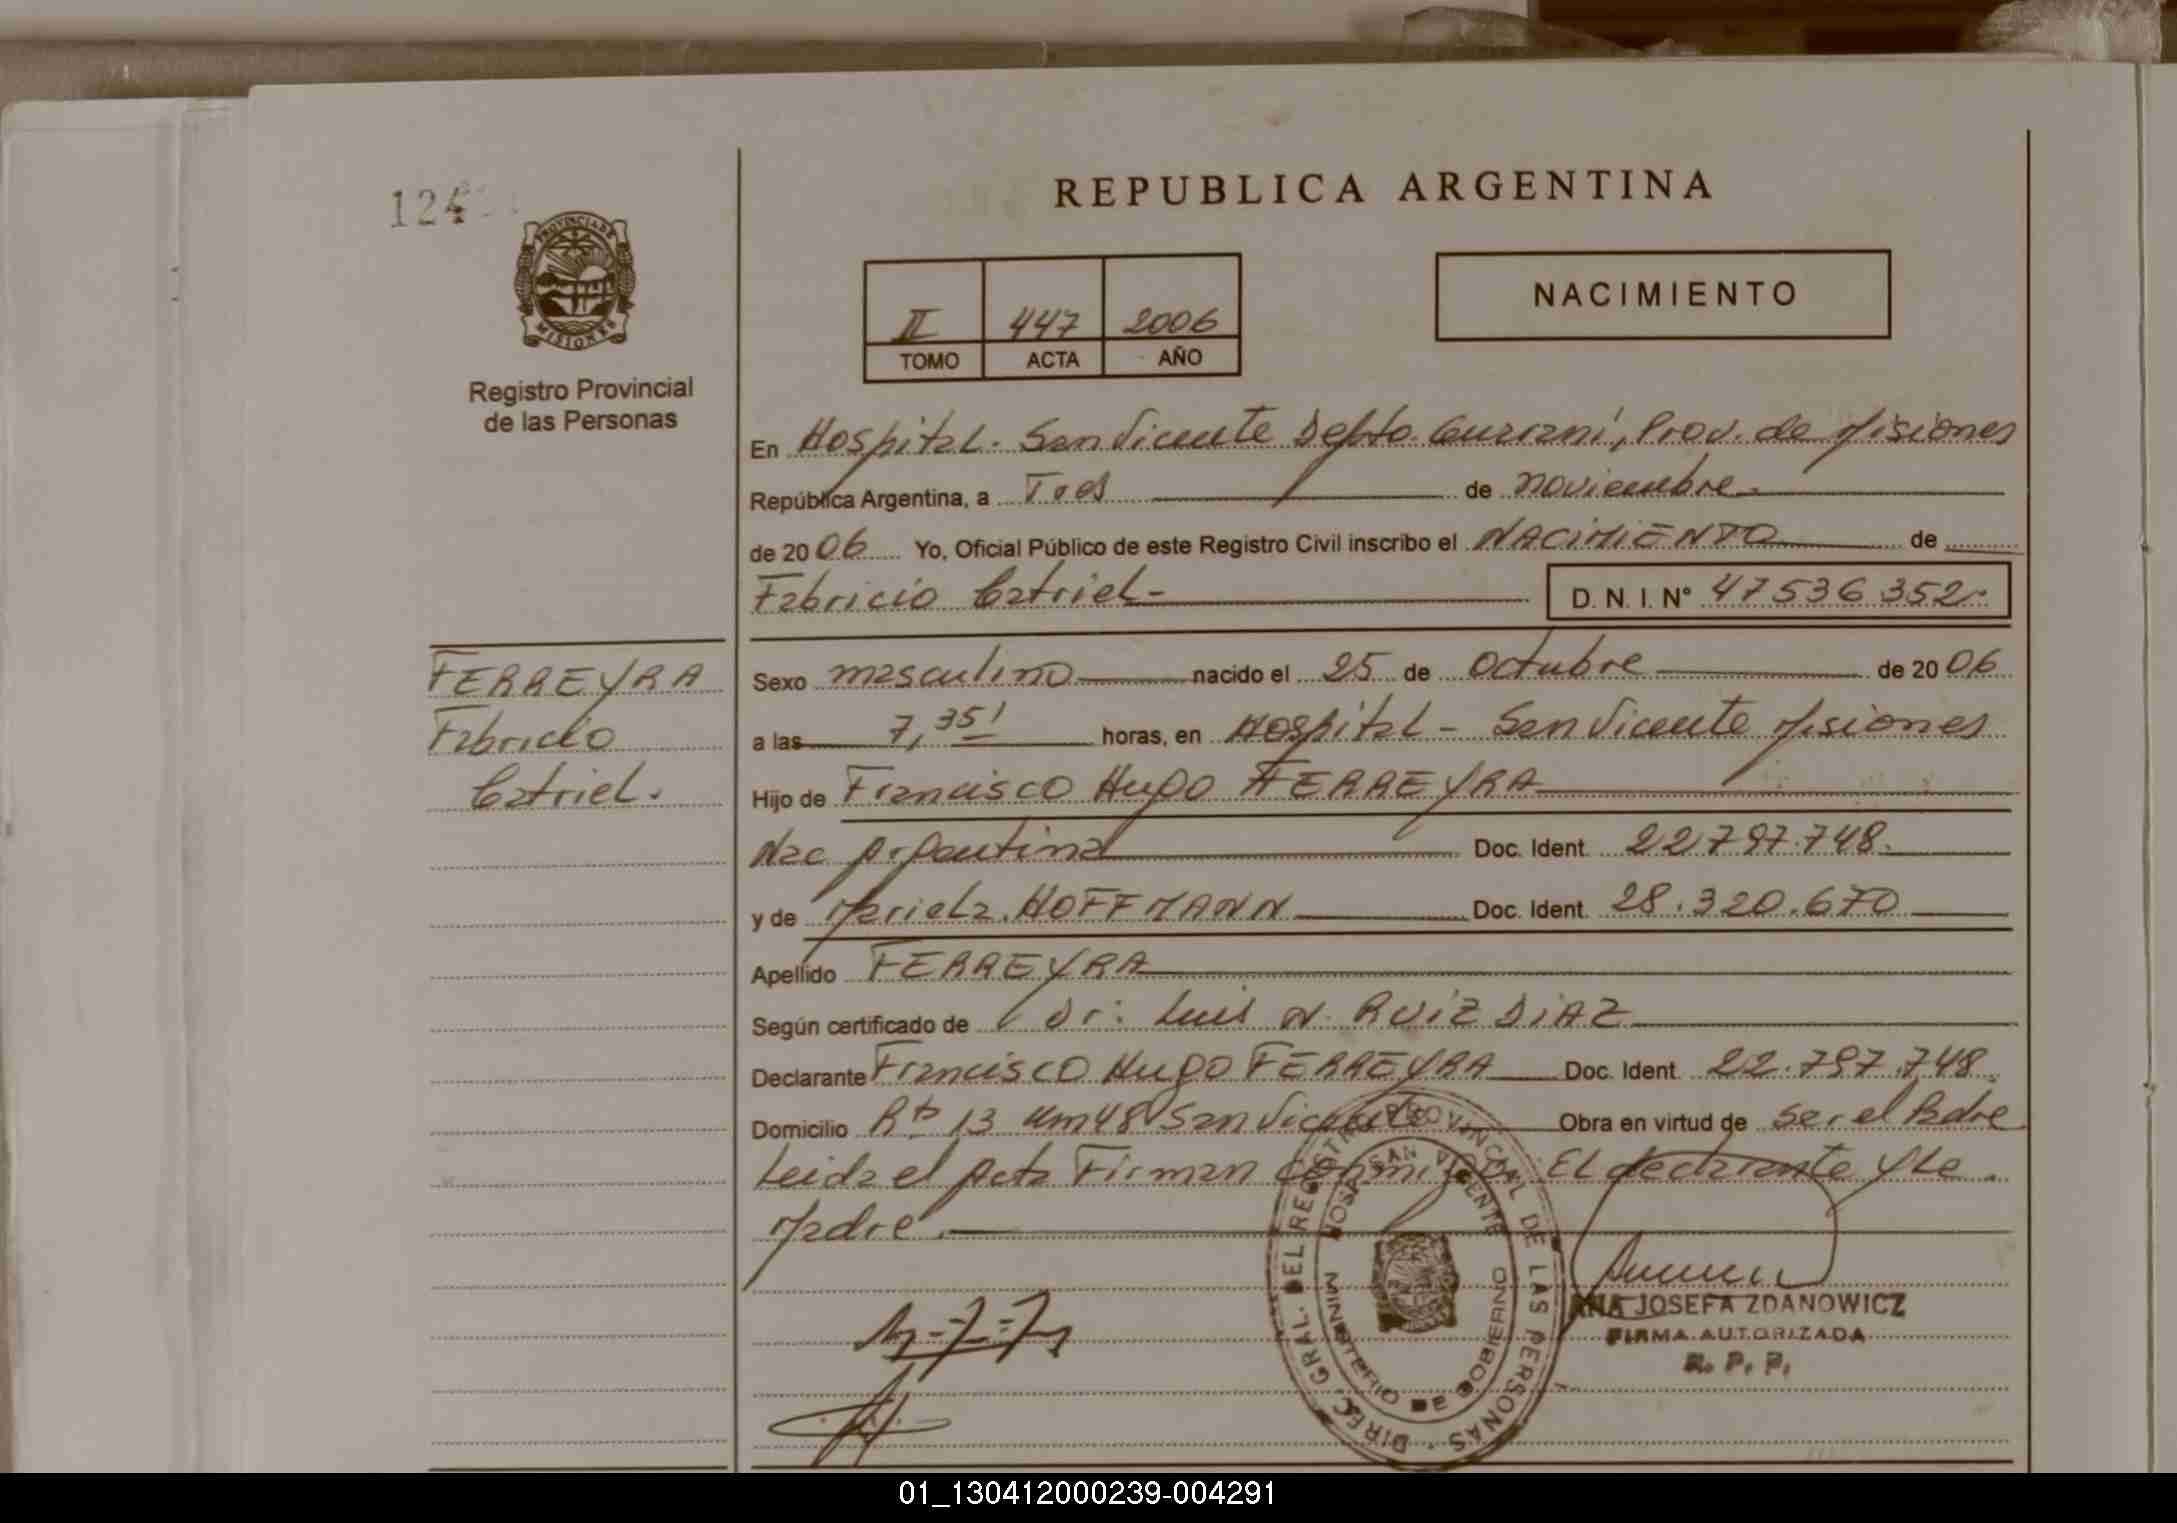 REPUBLICA ARGENTINA
124
PROVINCIA DE
MISIONES
Registro Provincial
de las Personas
II 447 2006
TOMO ACTA AÑO
NACIMIENTO
En Hospital - San Vicente Depto. Guaraní, Prov. de Misiones
República Argentina, a Tres de noviembre
de 2006 Yo, Oficial Público de este Registro Civil inscribo el NACIMIENTO de
Fabricio Catriel - D. N. I. N° 47536352.
FERREYRA
Fabricio
Catriel.
Sexo masculino nacido el 25 de Octubre de 2006
a las 7,35' horas, en Hospital - San Vicente Misiones
Hijo de Francisco Hugo FERREYRA
Nac Argentina Doc. Ident. 22.797.748.
y de Mariela HOFFMANN Doc. Ident. 28.320.670
Apellido FERREYRA
Según certificado de Dr: Luis N. RUIZ DIAZ
Declarante Francisco Hugo FERREYRA Doc. Ident. 22.797.748.
Domicilio Rta 13 Km 48 San Vicente Obra en virtud de ser el Padre
Leida el Acta Firman conmigo: El declarante y la
Madre.
DIREC. GRAL. DEL REGISTRO PROVINCIAL DE LAS PERSONAS
HOSP. SAN VICENTE
MINISTERIO DE GOBIERNO
ANA JOSEFA ZDANOWICZ
FIRMA AUTORIZADA
R. P. P.
01_130412000239-004291